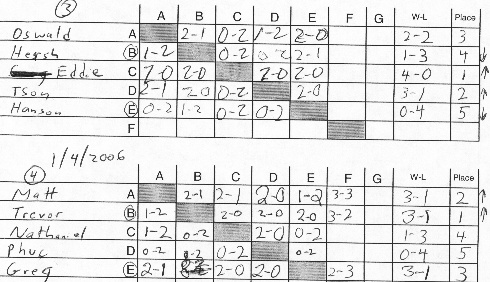 3 A B C D E F G W-L Place
Oswald A 2-1 0-2 1-2 2-0 2-2 3
Hersh B 1-2 0-2 0-2 2-1 1-3 4 ↓
Eddie C 2-0 2-0 2-0 2-0 4-0 1 ↑
Tson D 2-1 20 0-2 2-0 3-1 2 ↑
Hanson E 0-2 1-2 0-2 0-2 0-4 5 ↓
F
1/4/2006
4 A B C D E F G W-L Place
Matt A 2-1 2-1 2-0 1-2 3-3 3-1 2 ↑
Trevor B 1-2 2-0 2-0 2-0 3-2 3-1 1 ↑
Nathaniel C 1-2 0-2 2-0 0-2 1-3 4
Phuc D 0-2 0-2 0-2 0-2 0-4 5
Greg E 2-1 2-0 2-0 2-3 3-1 3